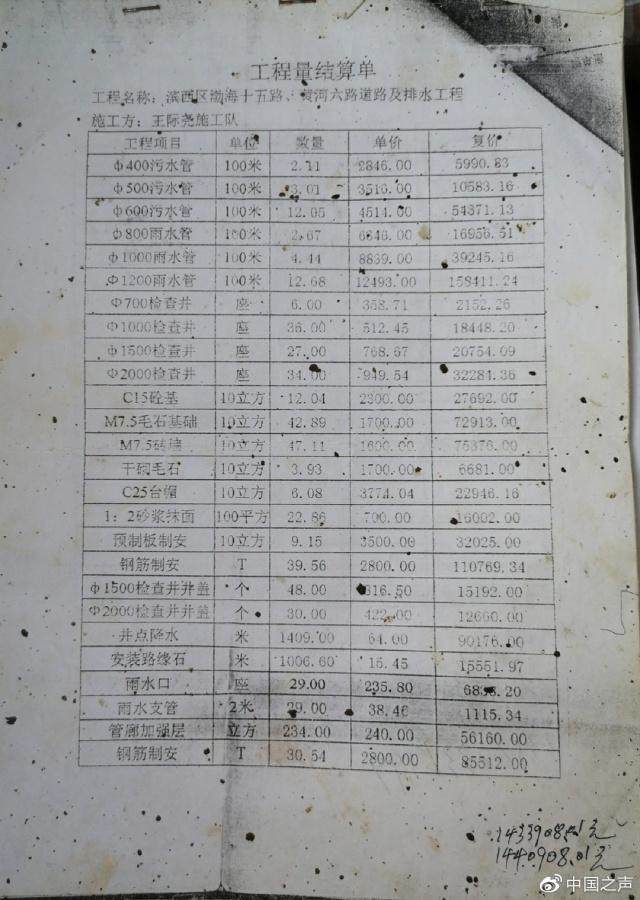 工程量结算单
工程名称：滨西区渤海十五路、黄河六路道路及排水工程
施工方：王际尧施工队
工程项目 单位 数量 单价 复价
Φ400污水管 100米 2846.00 5990.83
Φ500污水管 100米 3.01 3516.00 10583.16
Φ600污水管 100米 12.05 4514.00 54371.13
Φ800雨水管 100米 2.67 16956.51
Φ1000雨水管 100米 4.44 8839.00 39245.16
Φ1200雨水管 100米 12.68 12493.00 158411.24
Φ700检查井 座 6.00 358.71 2152.26
Φ1000检查井 座 36.00 512.45 18448.20
Φ1500检查井 座 27.00 768.67 20754.09
Φ2000检查井 座 34.00 949.54 32284.36
C15砼基 10立方 12.04 2300.00 27692.00
M7.5毛石基础 10立方 42.89 1700.00 72913.00
M7.5砖墙 10立方 47.11 1600.00 75376.00
干砌毛石 10立方 3.93 1700.00 6681.00
C25台帽 10立方 6.08 3774.04 22946.16
1：2砂浆抹面 100平方 22.86 700.00 16002.00
预制板制安 10立方 9.15 3500.00 32025.00
钢筋制安 T 39.56 2800.00 110769.34
Φ1500检查井井盖 个 48.00 316.50 15192.00
Φ2000检查井井盖 个 30.00 422.00 12660.00
井点降水 米 1409.00 64.00 90176.00
安装路缘石 米 1006.60 15.45 15551.97
雨水口 座 29.00 235.80 6838.20
雨水支管 2米 29.00 38.46 1115.34
管廊加强层 立方 234.00 240.00 56160.00
钢筋制安 T 30.54 2800.00 85512.00
1440908.01元
中国之声